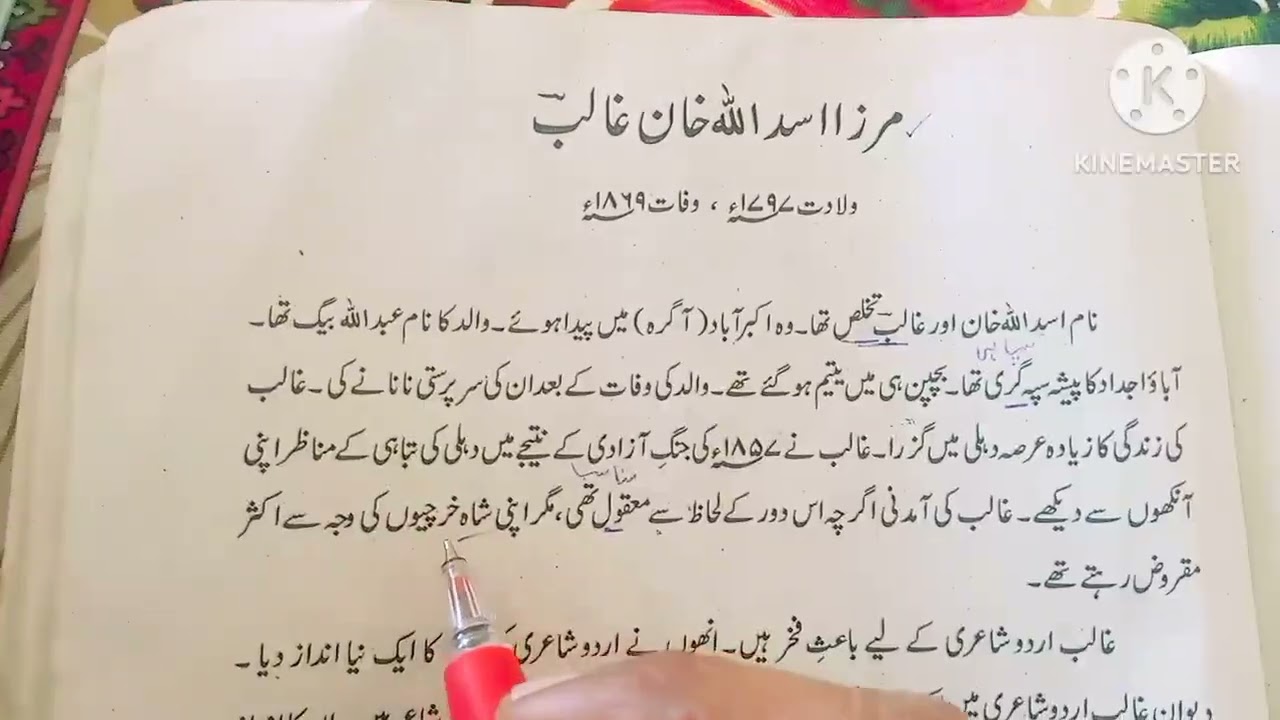 مرزا اسد اللہ خان غالبؔ
KINEMASTER
ولادت ۱۷۹۷ء ، وفات ۱۸۶۹ء
نام اسد اللہ خان اور غالبؔ تخلص تھا۔ وہ اکبر آباد (آگرہ) میں پیدا ہوئے۔ والد کا نام عبد اللہ بیگ تھا۔
آباؤ اجداد کا پیشہ سپہ گری تھا۔ بچپن ہی میں یتیم ہو گئے تھے۔ والد کی وفات کے بعد ان کی سرپرستی نانا نے کی۔ غالب
کی زندگی کا زیادہ عرصہ دہلی میں گزرا۔ غالب نے ۱۸۵۷ء کی جنگِ آزادی کے نتیجے میں دہلی کی تباہی کے مناظر اپنی
آنکھوں سے دیکھے۔ غالب کی آمدنی اگرچہ اس دور کے لحاظ سے معقول تھی، مگر اپنی شاہ خرچیوں کی وجہ سے اکثر
مقروض رہتے تھے۔
غالب اردو شاعری کے لیے باعثِ فخر ہیں۔ انھوں نے اردو شاعری کا ایک نیا انداز دیا۔
دیوانِ غالب اردو شاعری میں